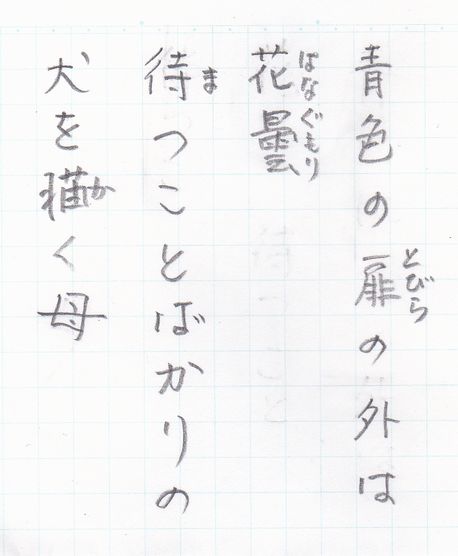 青色の扉の外は
とびら
花曇
はなぐもり
待つことばかりの
ま
犬を描く母
か